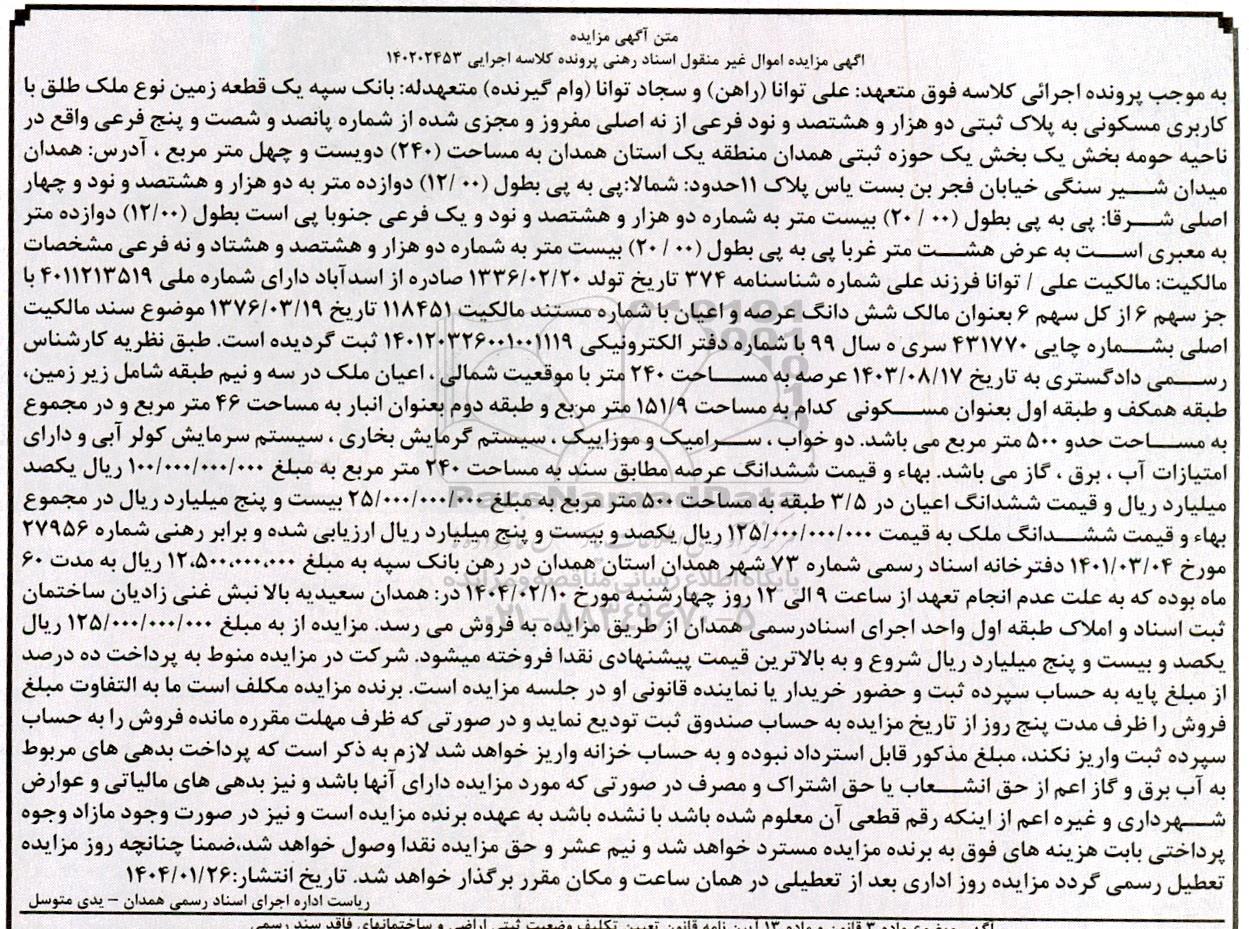 متن آگهی مزایده
آگهی مزایده اموال غیر منقول اسناد رهنی پرونده کلاسه اجرایی ۱۴۰۲۰۲۴۵۳
به موجب پرونده اجرائی کلاسه فوق متعهد: علی توانا (راهن) و سجاد توانا (وام گیرنده) متعهدله: بانک سپه یک قطعه زمین نوع ملک طلق با
کاربری مسکونی به پلاک ثبتی دو هزار و هشتصد و نود فرعی از نه اصلی مفروز و مجزی شده از شماره پانصد و شصت و پنج فرعی واقع در
ناحیه حومه بخش یک بخش یک حوزه ثبتی همدان منطقه یک استان همدان به مساحت (۲۴۰) دویست و چهل متر مربع ، آدرس: همدان
میدان شیر سنگی خیابان فجر بن بست یاس پلاک ۱۱حدود: شمالا:پی به پی بطول (۱۲/۰۰) دوازده متر به دو هزار و هشتصد و نود و چهار
اصلی شرقا: پی به پی بطول (۲۰/۰۰) بیست متر به شماره دو هزار و هشتصد و نود و یک فرعی جنوبا پی است بطول (۱۲/۰۰) دوازده متر
به معبری است به عرض هشت متر غربا پی به پی بطول (۲۰/۰۰) بیست متر به شماره دو هزار و هشتصد و هشتاد و نه فرعی مشخصات
مالکیت: مالکیت علی / توانا فرزند علی شماره شناسنامه ۳۷۴ تاریخ تولد ۱۳۳۶/۰۲/۲۰ صادره از اسدآباد دارای شماره ملی ۴۰۱۱۲۱۳۵۱۹ با
جز سهم ۶ از کل سهم ۶ بعنوان مالک شش دانگ عرصه و اعیان با شماره مستند مالکیت ۱۱۸۴۵۱ تاریخ ۱۳۷۶/۰۳/۱۹ موضوع سند مالکیت
اصلی بشماره چاپی ۴۳۱۷۷۰ سری ه سال ۹۹ با شماره دفتر الکترونیکی ۱۴۰۱۲۰۳۲۶۰۰۱۰۰۱۱۱۹ ثبت گردیده است. طبق نظریه کارشناس
رسمی دادگستری به تاریخ ۱۴۰۳/۰۸/۱۷ عرصه به مساحت ۲۴۰ متر با موقعیت شمالی ، اعیان ملک در سه و نیم طبقه شامل زیر زمین،
طبقه همکف و طبقه اول بعنوان مسکونی کدام به مساحت ۱۵۱/۹ متر مربع و طبقه دوم بعنوان انبار به مساحت ۴۶ متر مربع و در مجموع
به مساحت حدو ۵۰۰ متر مربع می باشد. دو خواب ، سرامیک و موزاییک ، سیستم گرمایش بخاری ، سیستم سرمایش کولر آبی و دارای
امتیازات آب ، برق ، گاز می باشد. بهاء و قیمت ششدانگ عرصه مطابق سند به مساحت ۲۴۰ متر مربع به مبلغ ۱۰۰/۰۰۰/۰۰۰/۰۰۰ ریال یکصد
میلیارد ریال و قیمت ششدانگ اعیان در ۳/۵ طبقه به مساحت ۵۰۰ متر مربع به مبلغ ۲۵/۰۰۰/۰۰۰/۰۰۰ بیست و پنج میلیارد ریال در مجموع
بهاء و قیمت ششدانگ ملک به قیمت ۱۲۵/۰۰۰/۰۰۰/۰۰۰ ریال یکصد و بیست و پنج میلیارد ریال ارزیابی شده و برابر رهنی شماره ۲۷۹۵۶
مورخ ۱۴۰۱/۰۳/۰۴ دفترخانه اسناد رسمی شماره ۷۳ شهر همدان استان همدان در رهن بانک سپه به مبلغ ۱۲،۵۰۰،۰۰۰،۰۰۰ ریال به مدت ۶۰
ماه بوده که به علت عدم انجام تعهد از ساعت ۹ الی ۱۲ روز چهارشنبه مورخ ۱۴۰۴/۰۲/۱۰ در: همدان سعیدیه بالا نبش غنی زادیان ساختمان
ثبت اسناد و املاک طبقه اول واحد اجرای اسنادرسمی همدان از طریق مزایده به فروش می رسد. مزایده از به مبلغ ۱۲۵/۰۰۰/۰۰۰/۰۰۰ ریال
یکصد و بیست و پنج میلیارد ریال شروع و به بالاترین قیمت پیشنهادی نقدا فروخته میشود. شرکت در مزایده منوط به پرداخت ده درصد
از مبلغ پایه به حساب سپرده ثبت و حضور خریدار یا نماینده قانونی او در جلسه مزایده است. برنده مزایده مکلف است ما به التفاوت مبلغ
فروش را ظرف مدت پنج روز از تاریخ مزایده به حساب صندوق ثبت تودیع نماید و در صورتی که ظرف مهلت مقرره مانده فروش را به حساب
سپرده ثبت واریز نکند، مبلغ مذکور قابل استرداد نبوده و به حساب خزانه واریز خواهد شد لازم به ذکر است که پرداخت بدهی های مربوط
به آب برق و گاز اعم از حق انشعاب یا حق اشتراک و مصرف در صورتی که مورد مزایده دارای آنها باشد و نیز بدهی های مالیاتی و عوارض
شهرداری و غیره اعم از اینکه رقم قطعی آن معلوم شده باشد با نشده باشد به عهده برنده مزایده است و نیز در صورت وجود مازاد وجوه
پرداختی بابت هزینه های فوق به برنده مزایده مسترد خواهد شد و نیم عشر و حق مزایده نقدا وصول خواهد شد،ضمنا چنانچه روز مزایده
تعطیل رسمی گردد مزایده روز اداری بعد از تعطیلی در همان ساعت و مکان مقرر برگذار خواهد شد. تاریخ انتشار:۱۴۰۴/۰۱/۲۶
ریاست اداره اجرای اسناد رسمی همدان - یدی متوسل
آگهی موضوع ماده ۳ قانون و ماده ۱۳ آیین نامه قانون تعیین تکلیف وضعیت ثبتی اراضی و ساختمانهای فاقد سند رسمی
ParsNamadData
پایگاه اطلاع رسانی مناقصه و مزایده
۰۲۱-۸۸۳۴۹۶۷۰-۵